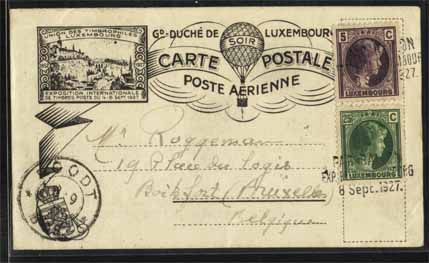 UNION DES TIMBROPHILES
LUXEMBOURG
EXPOSITION INTERNATIONALE
DE TIMBRES POSTE DU 4-8 SEPT 1927
GD-DUCHÉ DE LUXEMBOURG
SOIR
CARTE POSTALE
POSTE AÉRIENNE
5 C
LUXEMBOURG
1927.
25 C
LUXEMBOURG
8 Sept. 1927.
Mr Roggeman
19 Place du logis
Boitsfort (Bruxelles)
Belgique